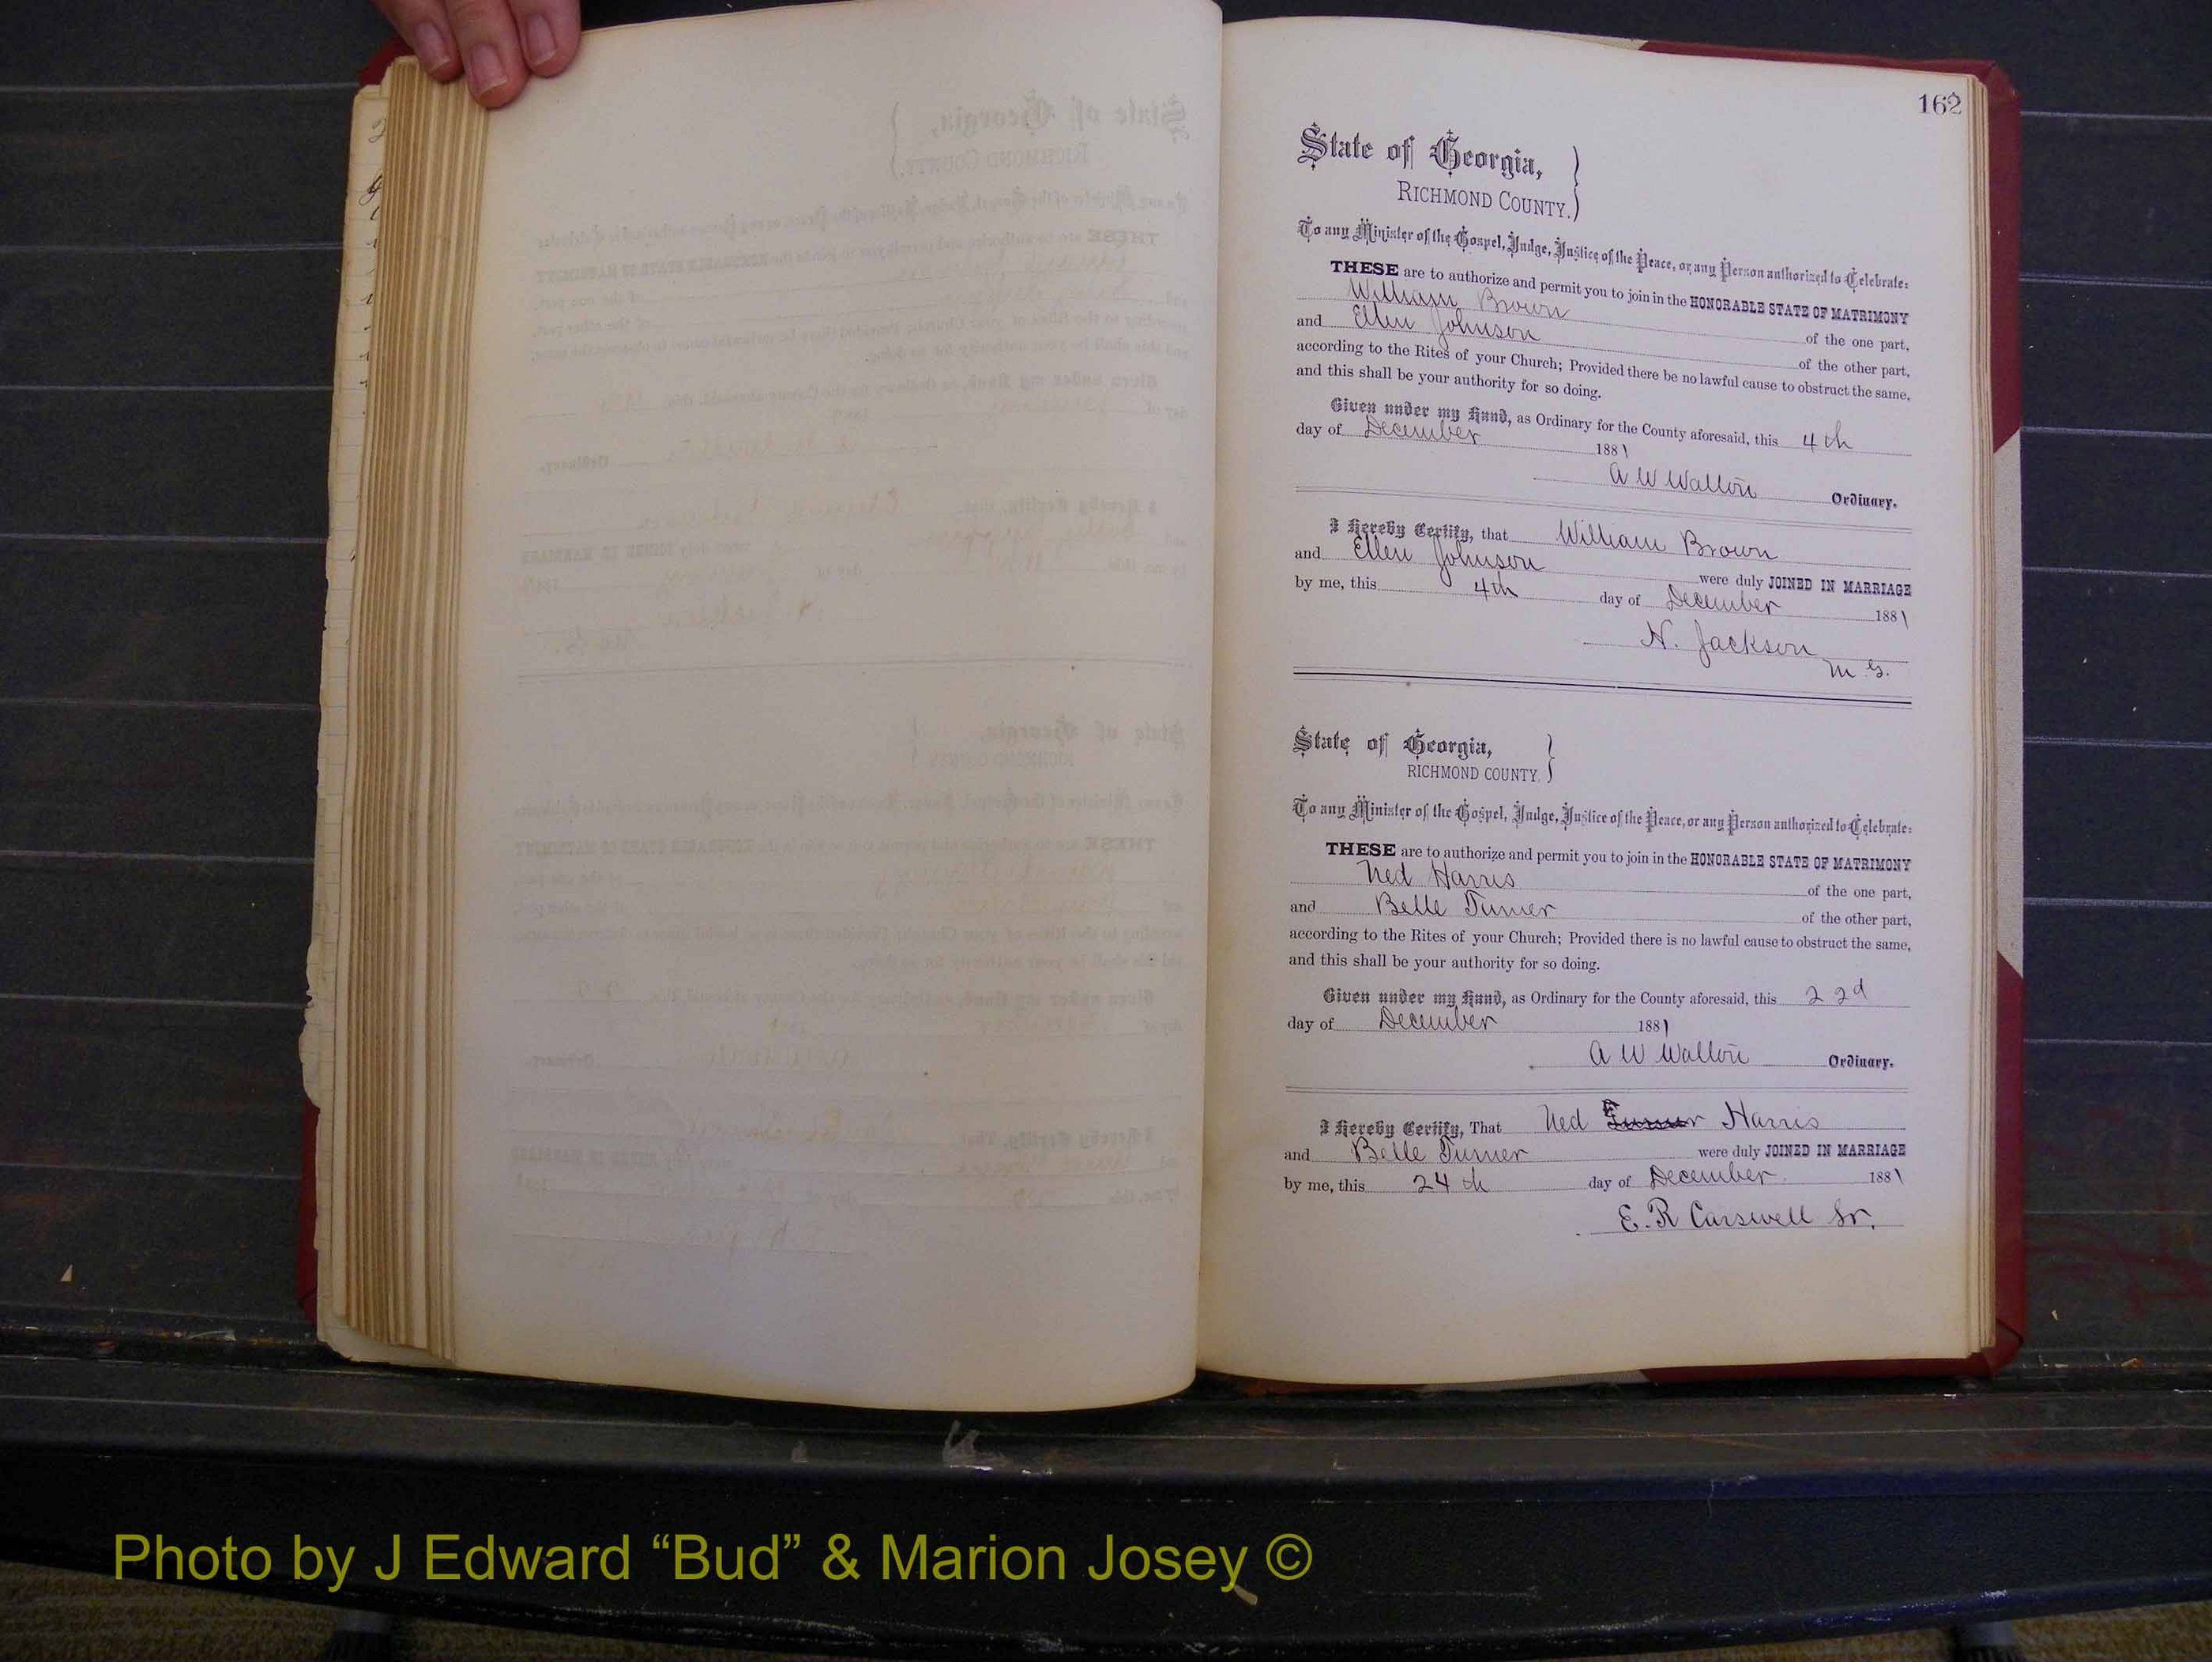 162
State of Georgia,
RICHMOND COUNTY.
To any Minister of the Gospel, Judge, Justice of the Peace, or any Person authorized to Celebrate:
THESE are to authorize and permit you to join in the HONORABLE STATE OF MATRIMONY
William Brown of the one part,
and Ellen Johnson of the other part,
according to the Rites of your Church; Provided there be no lawful cause to obstruct the same,
and this shall be your authority for so doing.
Given under my Hand, as Ordinary for the County aforesaid, this 4th
day of December 1881
A W Walton Ordinary.
I Hereby Certify, that William Brown
and Ellen Johnson were duly JOINED IN MARRIAGE
by me, this 4th day of December 1881
N. Jackson
M G.
State of Georgia,
RICHMOND COUNTY.
To any Minister of the Gospel, Judge, Justice of the Peace, or any Person authorized to Celebrate:
THESE are to authorize and permit you to join in the HONORABLE STATE OF MATRIMONY
Ned Harris of the one part,
and Belle Turner of the other part,
according to the Rites of your Church; Provided there is no lawful cause to obstruct the same,
and this shall be your authority for so doing.
Given under my Hand, as Ordinary for the County aforesaid, this 22d
day of December 1881
A W Walton Ordinary.
I Hereby Certify, That Ned Harris
and Belle Turner were duly JOINED IN MARRIAGE
by me, this 24th day of December 1881
E. R Carswell Sr.
Photo by J Edward “Bud” & Marion Josey ©